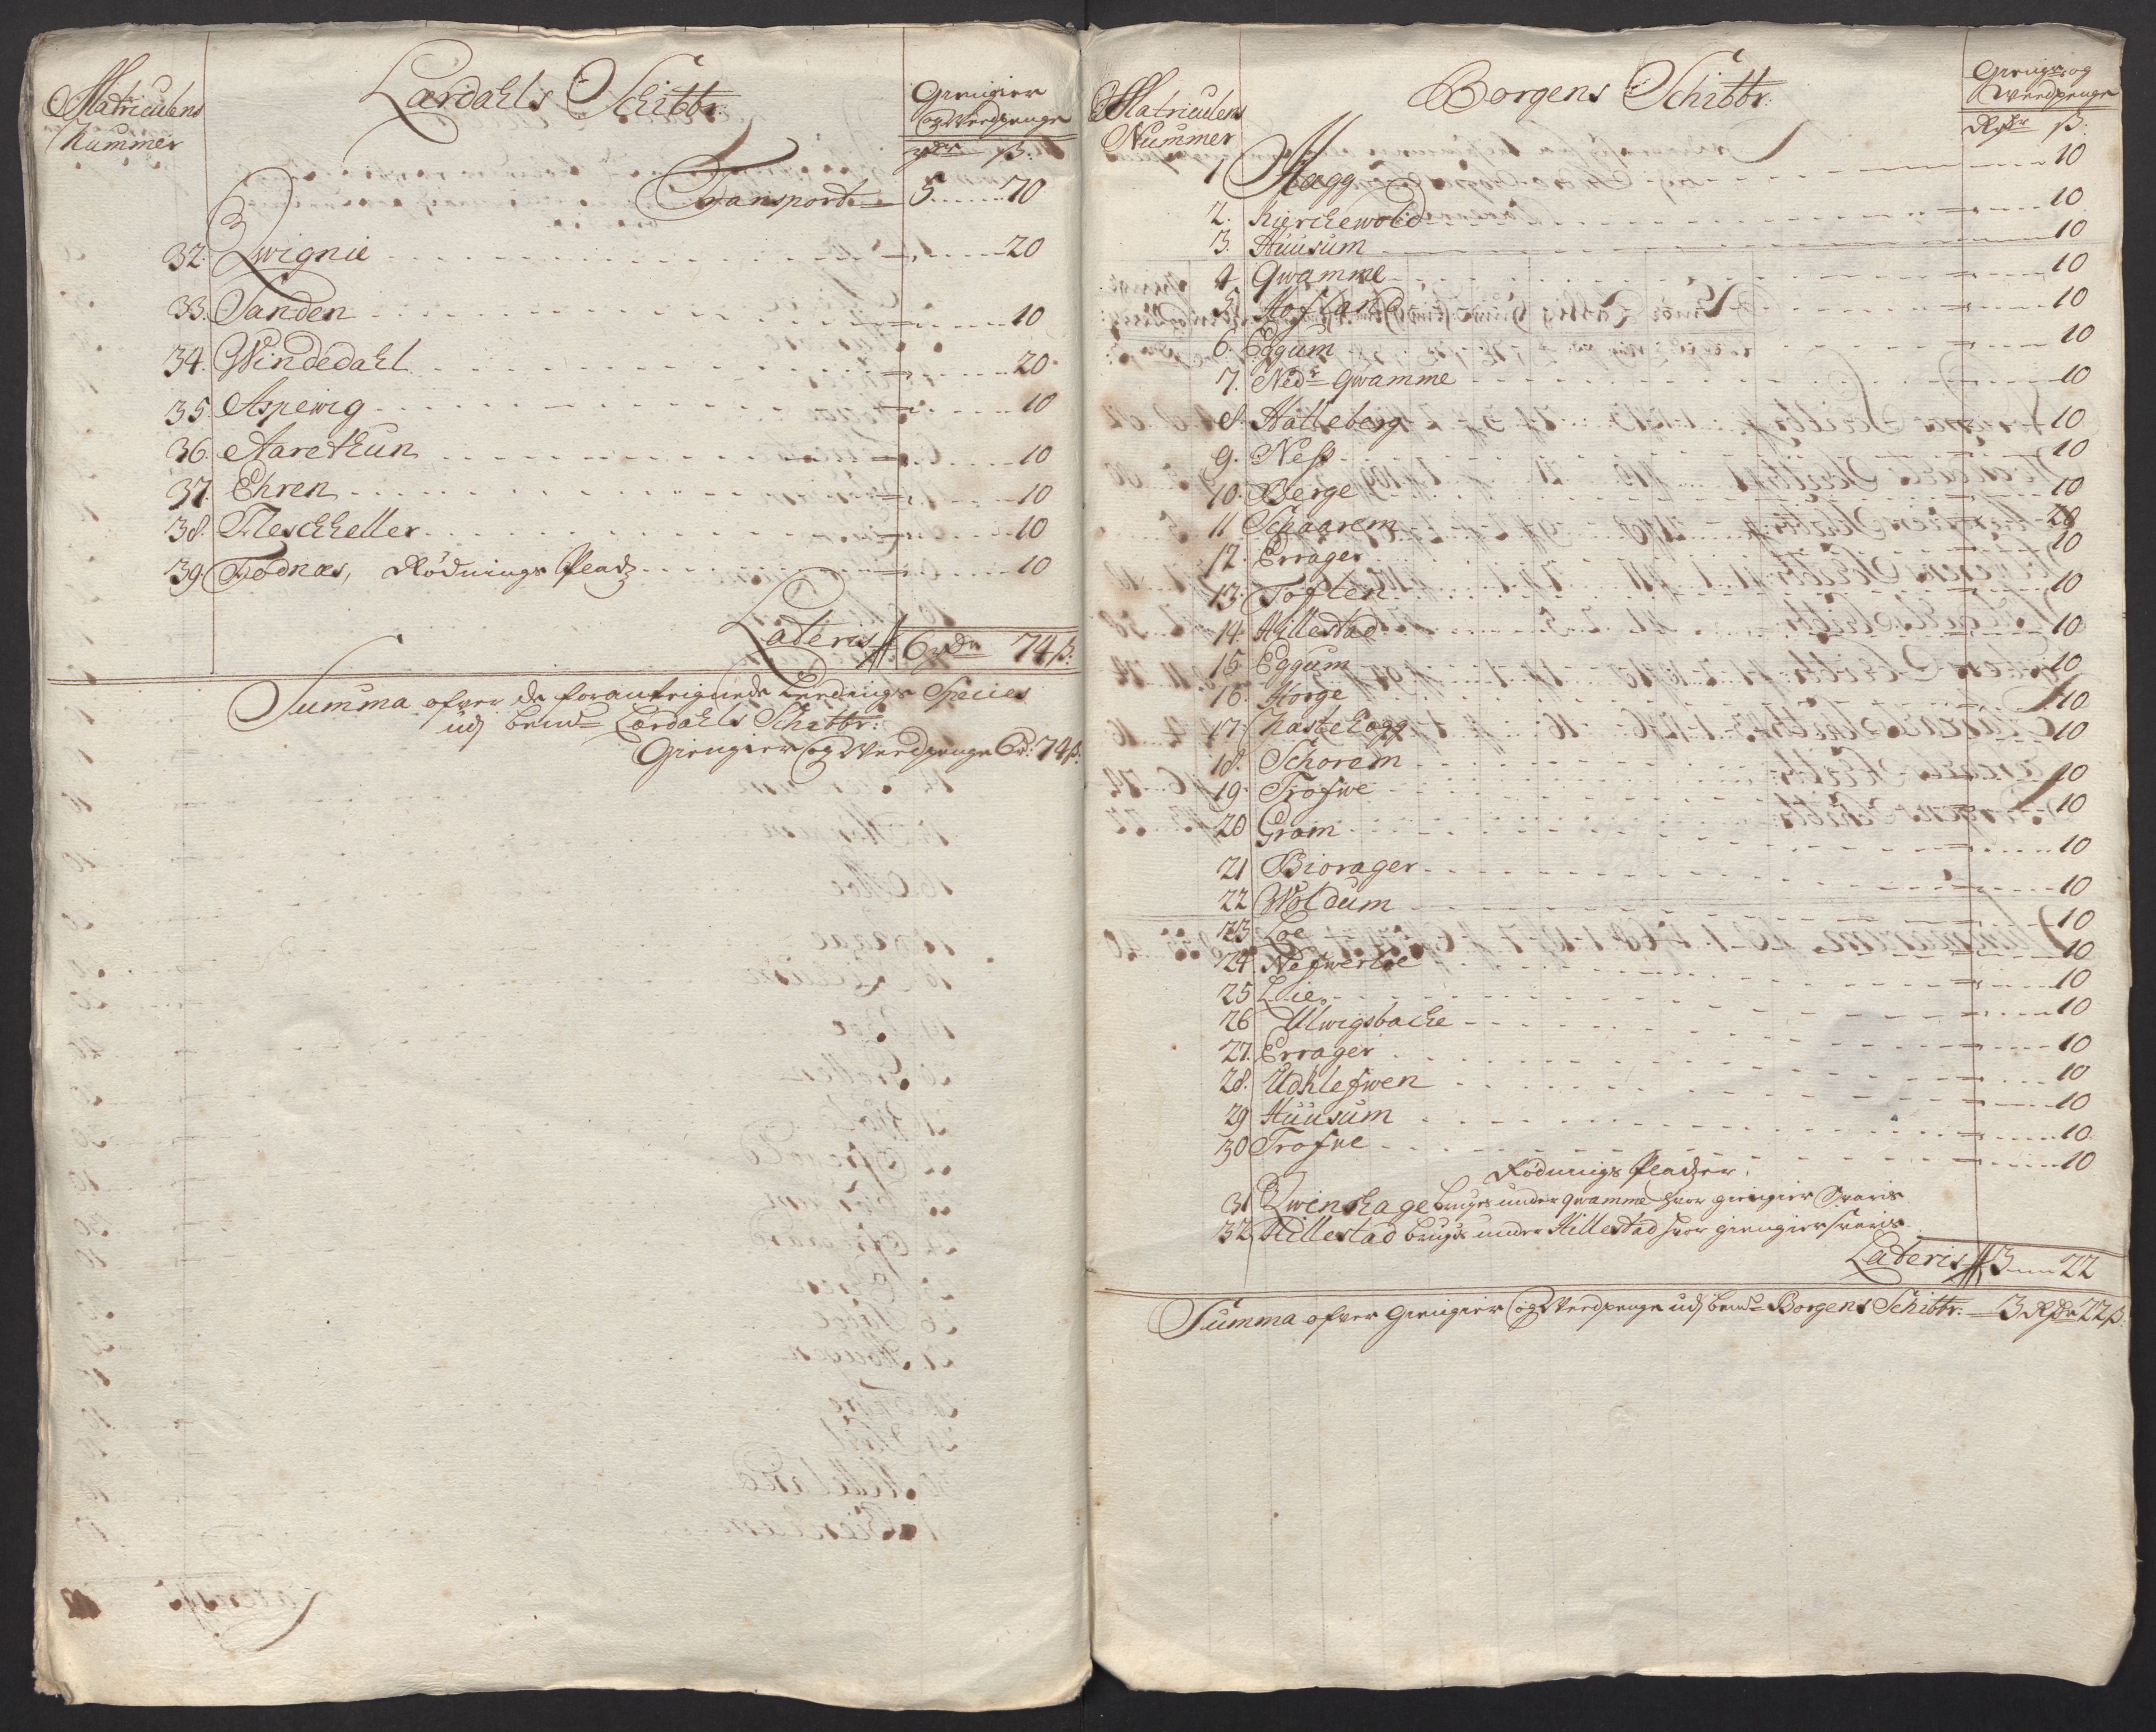 Matriculens
Nummer
Lærdahls Schibbr:
Giengier
og Weedpenge
rdr ß:
Transport 5 70
32. Qwignie 20
33. Sanden 10
34. Windedahl 20
35. Aspewig 10
36. Aarethun 10
37. Ehren 10
38. Fleschheller 10
39. Fodnæs, Rødnings Pladz 10
Lateris 6 rdr 74 ß:
Summa ofver de foranteignede Leedings Species
udj bemte Lærdahls Schibbr:
Giengier og Weedpenge 6 r: 74 ß:
Matriculens
Nummer
Borgens Schibbr:
Giengr: og
Weedpenge
Rdr ß:
1 Hægg 10
2. Kierchewold 10
3. Huusum 10
4 Qwamme 10
5. Hofland 10
6. Eggum 10
7. Nedr Qwamme 10
8. Halleberg 10
9. Neß 10
10. Berge 10
11 Schaarem 20
12. Errager 10
13. Toften 10
14. Hillestad 10
15. Eggum 10
16. Horge 10
17. Kastehogg 10
18. Schorem
19. Trofwe 10
20 Grøm 10
21 Biorager 10
22 Woldum 10
23 Loe 10
24 Nefwerloe 10
25 Lie 10
26 Ulwigsbache 10
27. Errager 10
28. Udhlefwen 10
29 Huusum 10
30 Trofwe 10
10
Rødnings Pladzer.
31 Qwenshage bruges under Qwamme hvor giengier svaris
32. Hillestad brugis under Hillestad hvor giengier svaris
Lateris 3 22
Summa ofver Giengier og Weedpenge udj bemte Borgens Schibbr: 3 Rdr 22 ß.